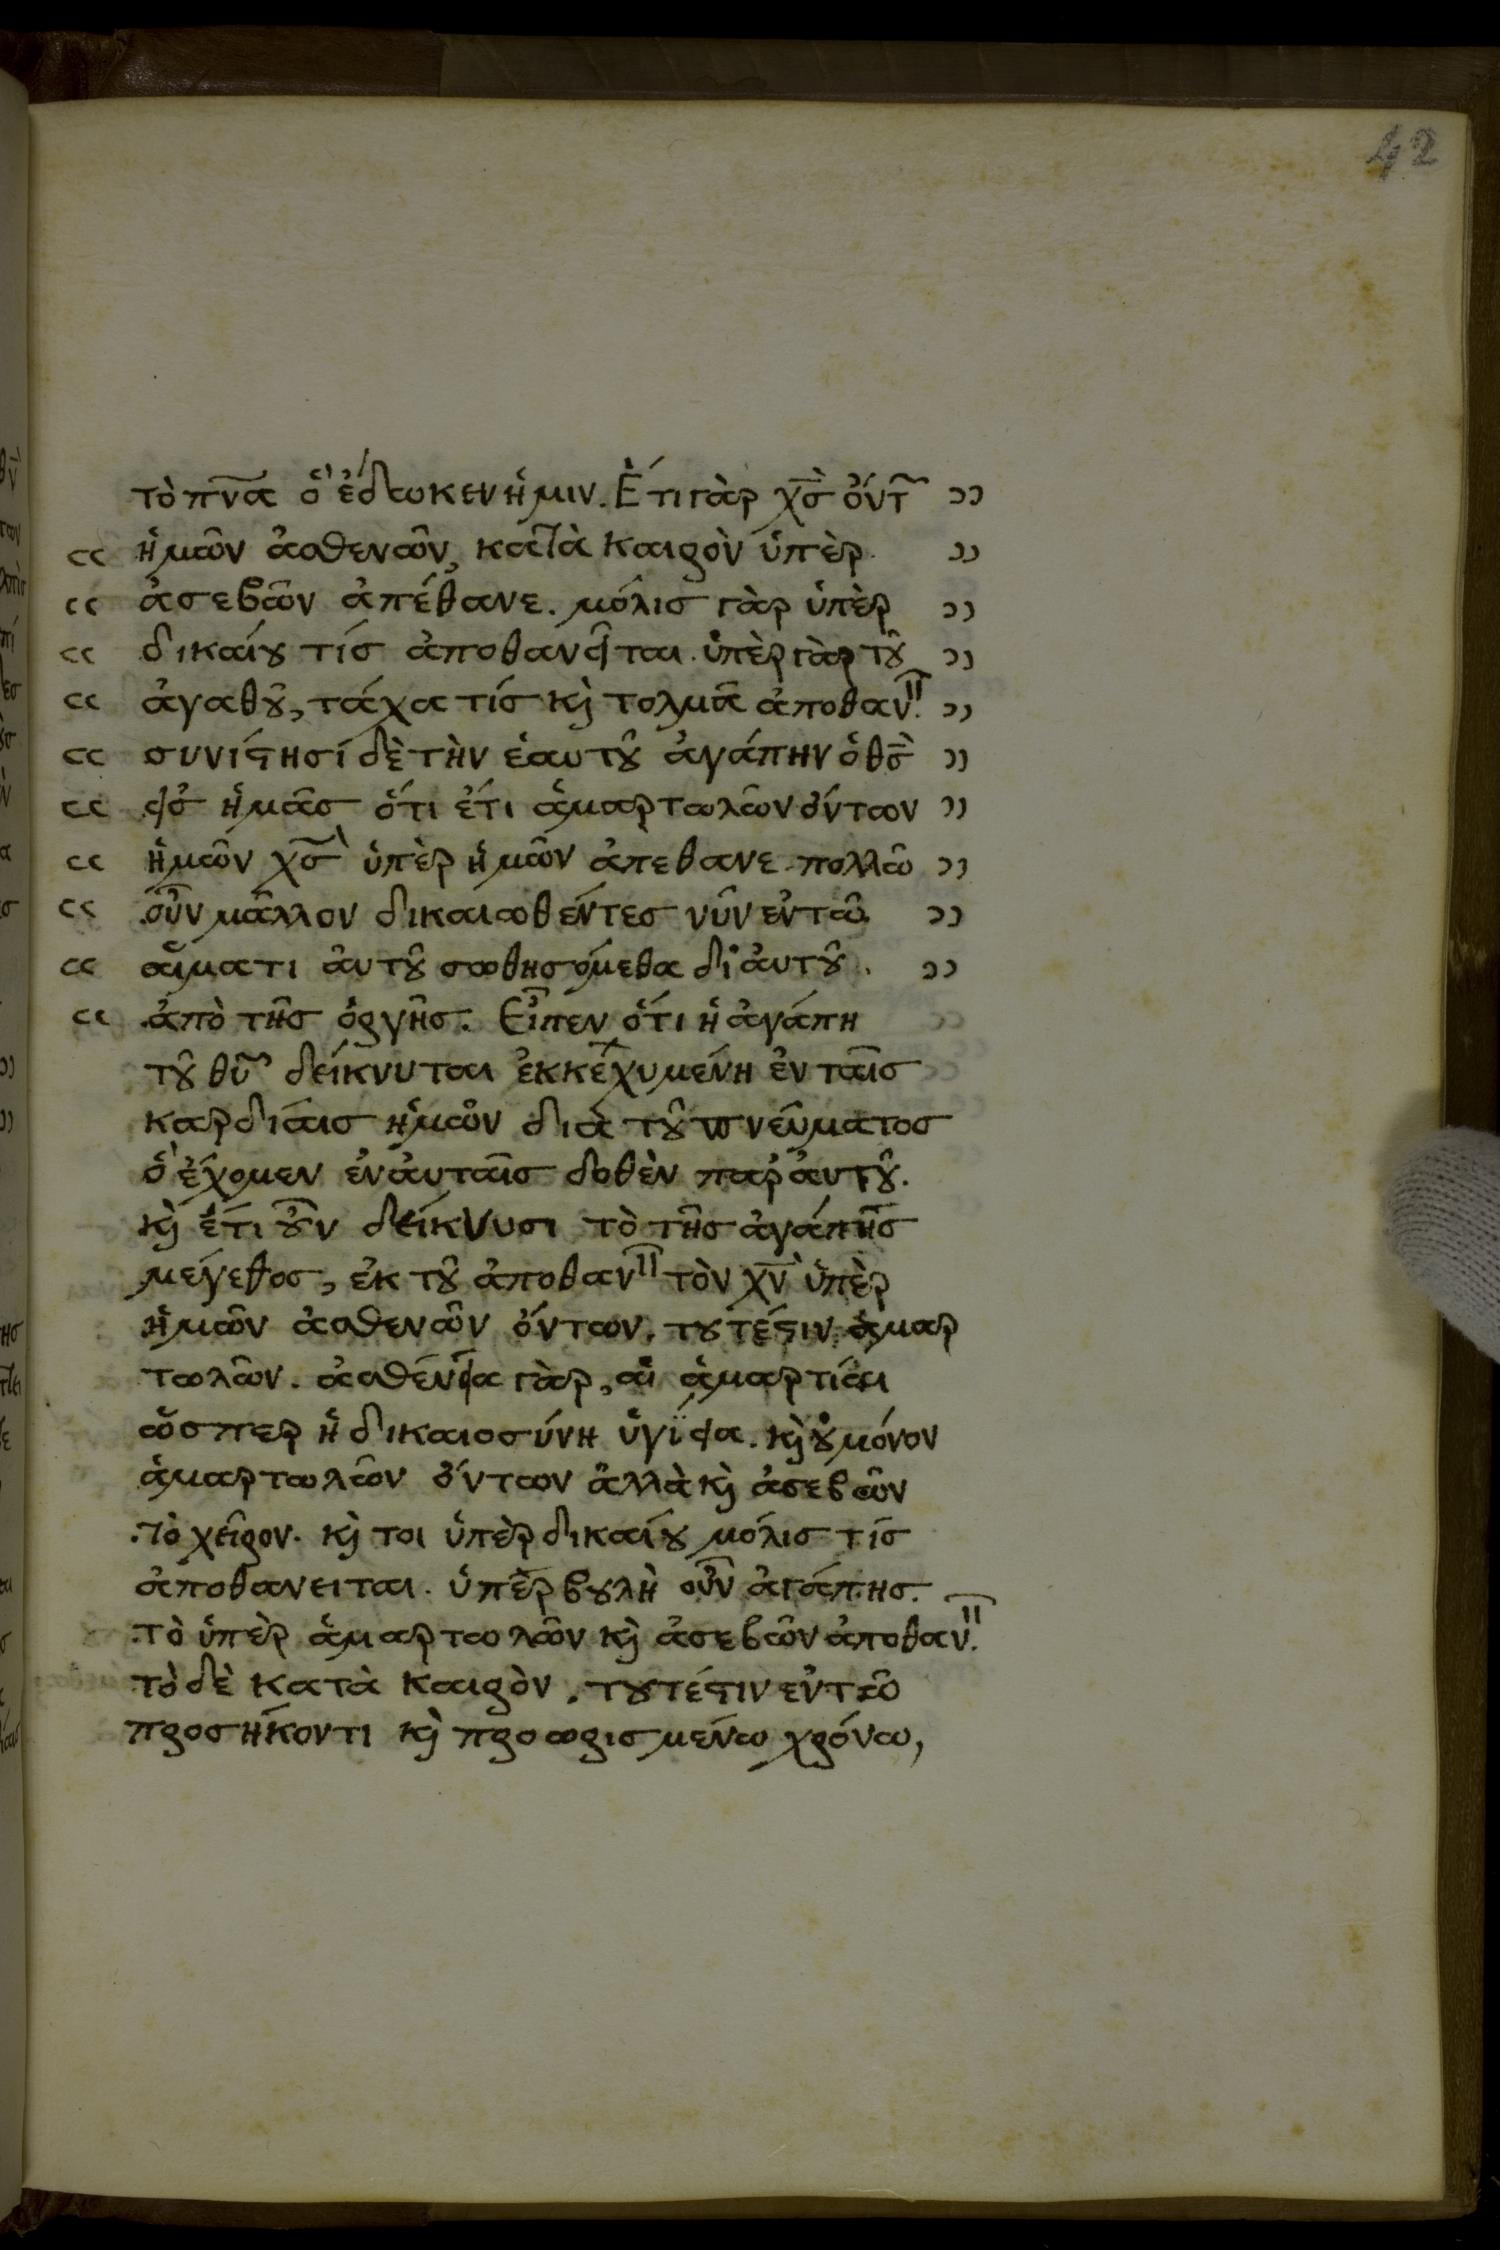 42
τὸ πν̅α ὃ ἔδωκεν ἡμιν. Ἔτι γὰρ χ̅σ̅ ὄντ͂ ͻͻ
cc ἡμῶν ἀσθενῶν, κατὰ καιρὸν ὑπὲρ ͻͻ
cc ἀσεβῶν ἀπέθανε. μόλισ γὰρ ὑπὲρ ͻͻ
cc δικαίȣ τίσ ἀποθανεῖται. ὑπὲρ γὰρ τȣ͂ ͻͻ
cc ἀγαθȣ͂, τάχα τίσ κὶ τολμᾶ ἀποθαν͂. ͻͻ
cc συνίϛησί δὲ τὴν ἑαυτȣ͂ ἀγάπην ὁ θ̅σ̅ ͻͻ
cc εἰσ ἡμᾶσ ὅτι ἔτι ἁμαρτωλῶν ὄντων ͻͻ
cc ἡμῶν χ̅σ̅ ὑπὲρ ἡμῶν ἀπεθανε. πολλῶ ͻͻ
cc οὖν μᾶλλον δικαιωθέντεσ νῦν ἐν τῶ ͻͻ
cc αἵματι ἀυτȣ͂ σωθησόμεθα δι' ἀυτȣ͂. ͻͻ
cc ἀπὸ τῆσ ὀργῆσ. Εἶπεν ὅτι ἡ ἀγάπη
τȣ͂ θῦ δείκνυται ἐκκεχυμένη ἐν ταῖσ
καρδίαισ ἡμῶν διὰ τȣ͂ πνεύματοσ
ὃ ἔχομεν ἐν ἀυταῖσ δοθὲν παρ' ἀυτȣ͂.
κὶ ἔτι ȣ͂ν δείκνυσι τὸ τῆσ ἀγάπησ
μέγεθοσ, ἐκ τȣ͂ ἀποθαν͂ τὸν χ̅ν̅ ὑπὲρ
ἡμῶν ἀσθενῶν ὄντων. τȣτέϛιν ἁμαρ
τωλῶν. ἀσθένεια γὰρ, αἱ ἁμαρτίαι
ὥσπερ ἡ δικαιοσύνη ὑγίεια. κὶ ȣ̓ μόνον
ἁμαρτωλῶν ὄντων ἀλλὰ κὶ ἀσεβῶν
τὸ χεῖρον. κὶ τοι ὑπὲρ δικαίȣ μόλισ τίσ
ἀποθανειται. ὑπὲρβȣλὴ οὖν ἀγάπησ.
τὸ ὑπὲρ ἁμαρτωλῶν κὶ ἀσεβῶν ἀποθαν͂.
τὸ δὲ κατὰ καιρὸν, τȣτέϛιν ἐν τῶ
προσήκοντι κὶ προωρισμένω χρόνω,